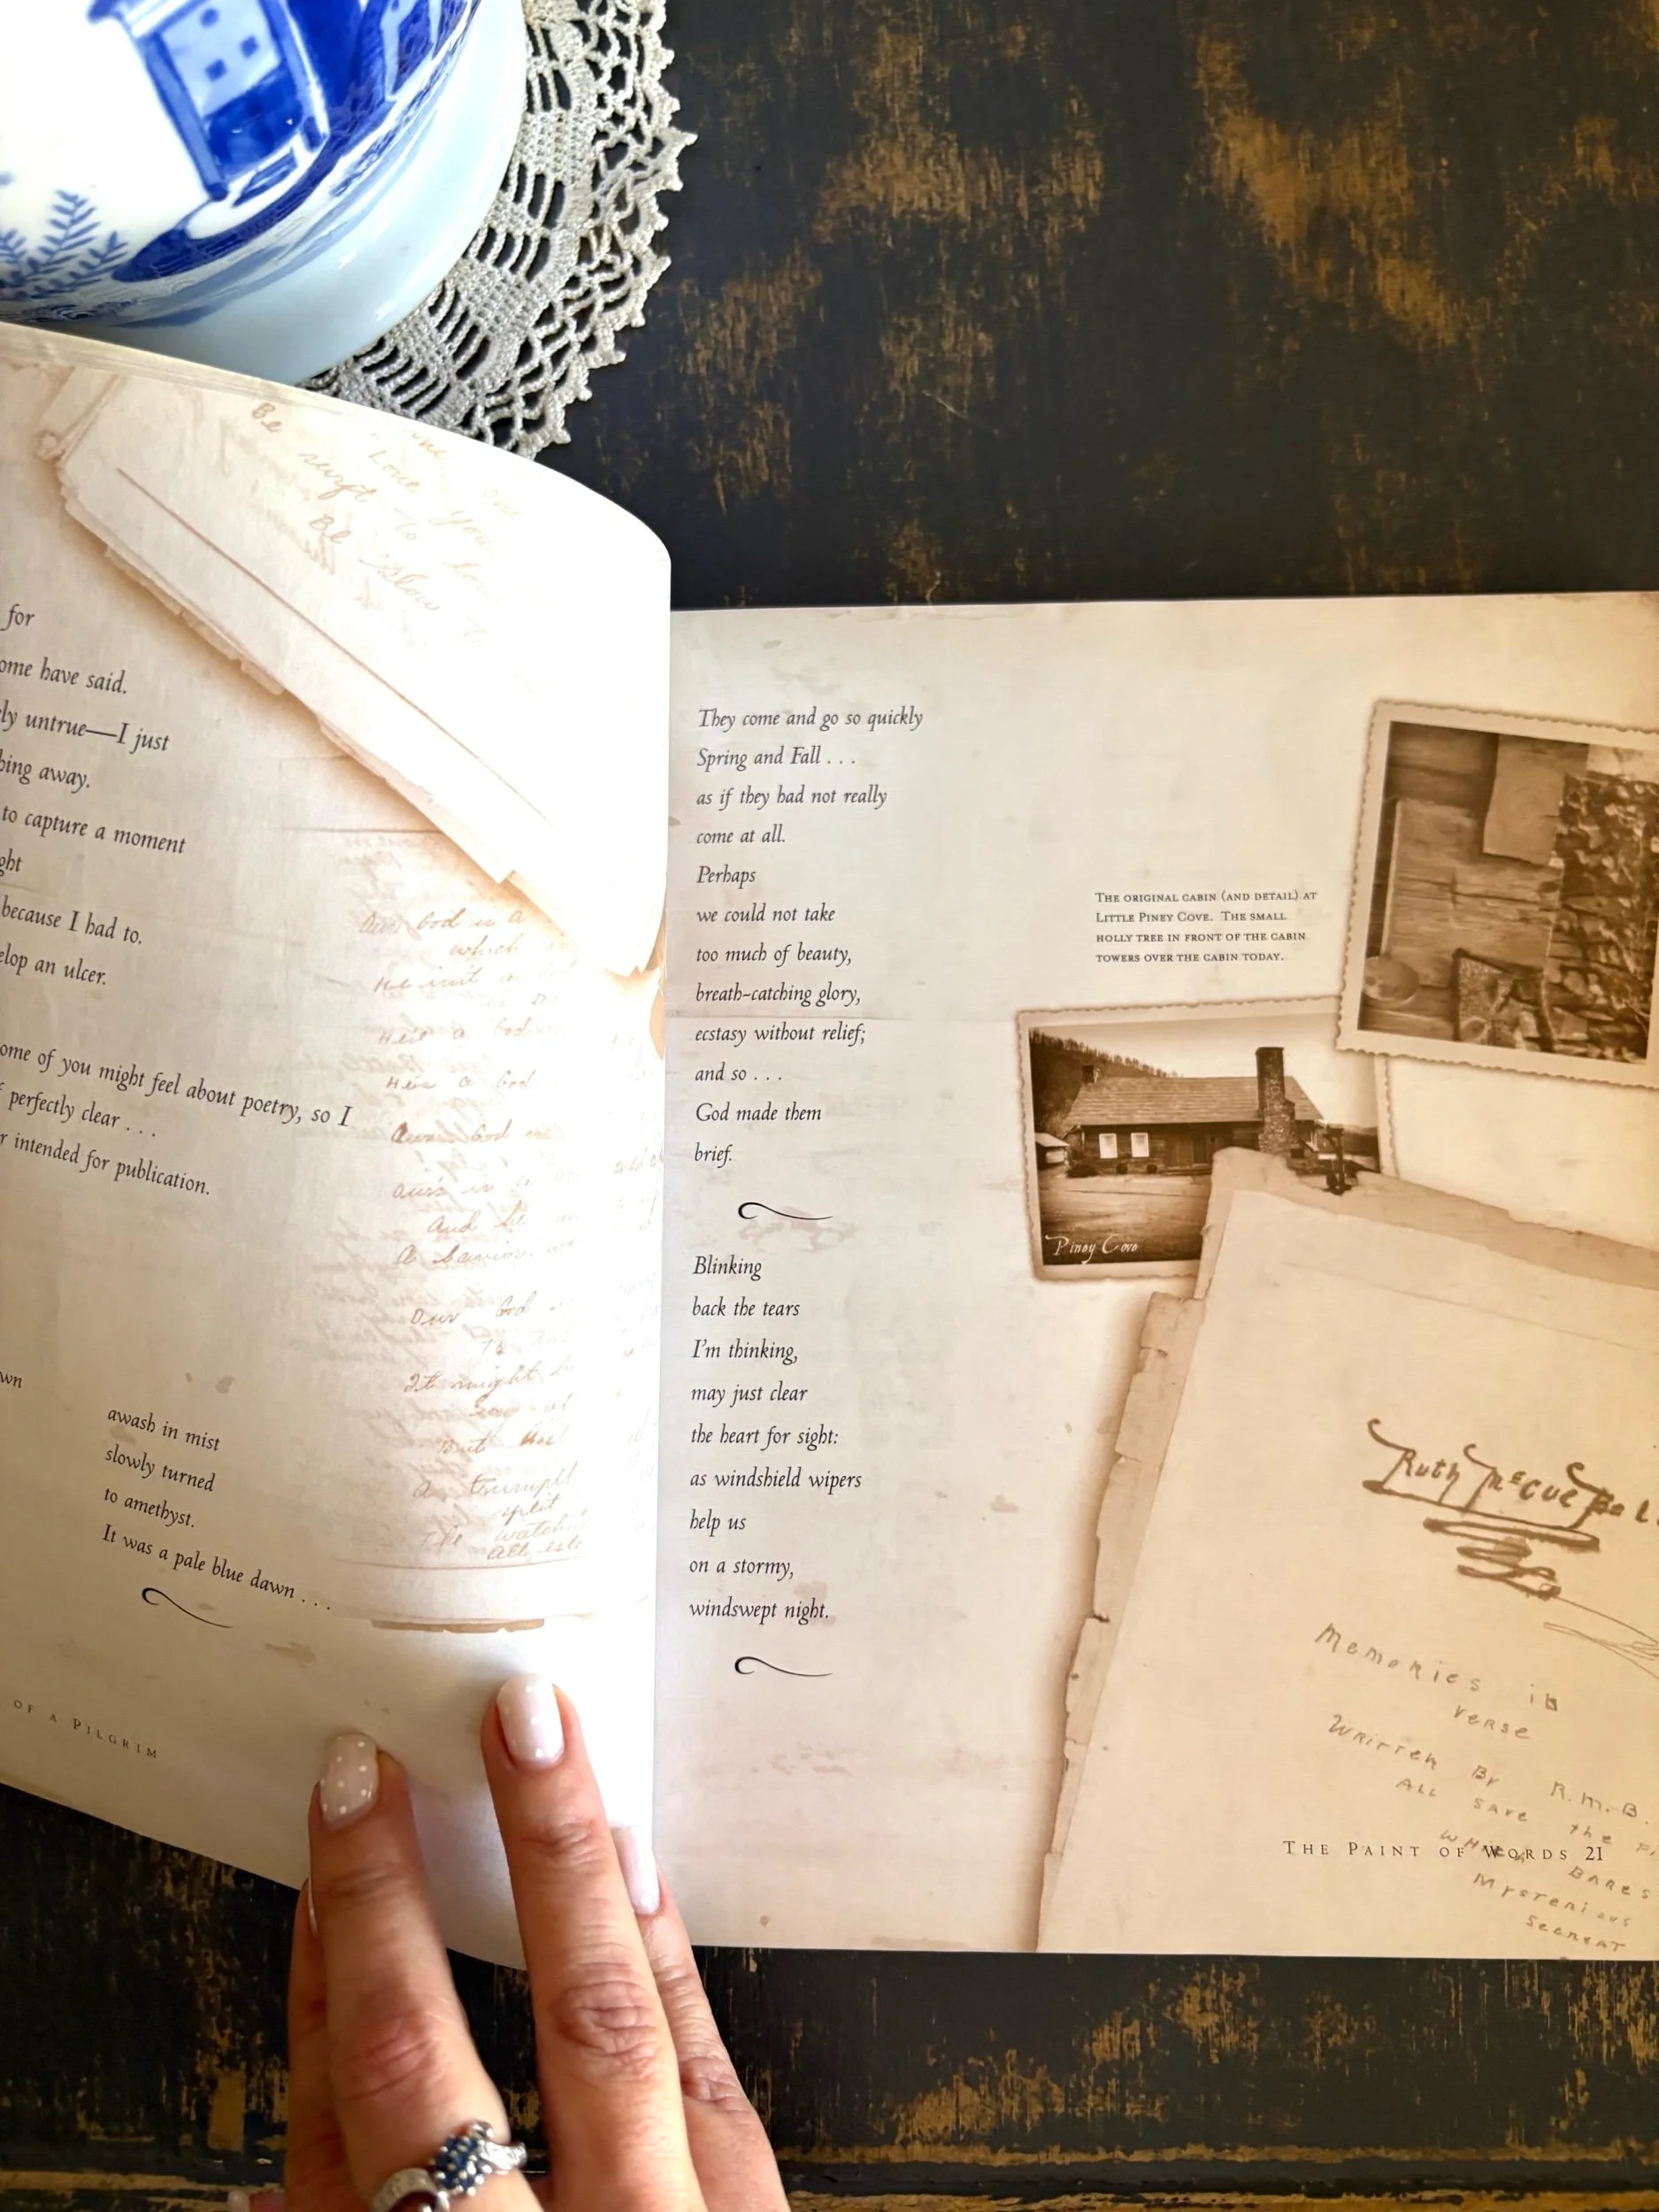 for
ome have said.
ly untrue—I just
hing away.
to capture a moment
ght
because I had to.
elop an ulcer.
ome of you might feel about poetry, so I
f perfectly clear . . .
r intended for publication.
wn
awash in mist
slowly turned
to amethyst.
It was a pale blue dawn . . .
OF A PILGRIM
Be
Love you
Be Slow
Our God is a
which
He isn't a
He's a God
He's a God
Our God
Ours is a
And he
A Saviour
Our God
It might
But
a trumpet
split
The watch
All
They come and go so quickly
Spring and Fall . . .
as if they had not really
come at all.
Perhaps
we could not take
too much of beauty,
breath-catching glory,
ecstasy without relief;
and so . . .
God made them
brief.
Blinking
back the tears
I'm thinking,
may just clear
the heart for sight:
as windshield wipers
help us
on a stormy,
windswept night.
THE ORIGINAL CABIN (AND DETAIL) AT
LITTLE PINEY COVE. THE SMALL
HOLLY TREE IN FRONT OF THE CABIN
TOWERS OVER THE CABIN TODAY.
Piney Cove
Ruth McCue Bell
Memories in
verse
Wrirten By R.M.B.
All save the Fi
which Bares
Mysterious
Secreat
THE PAINT OF WORDS 21